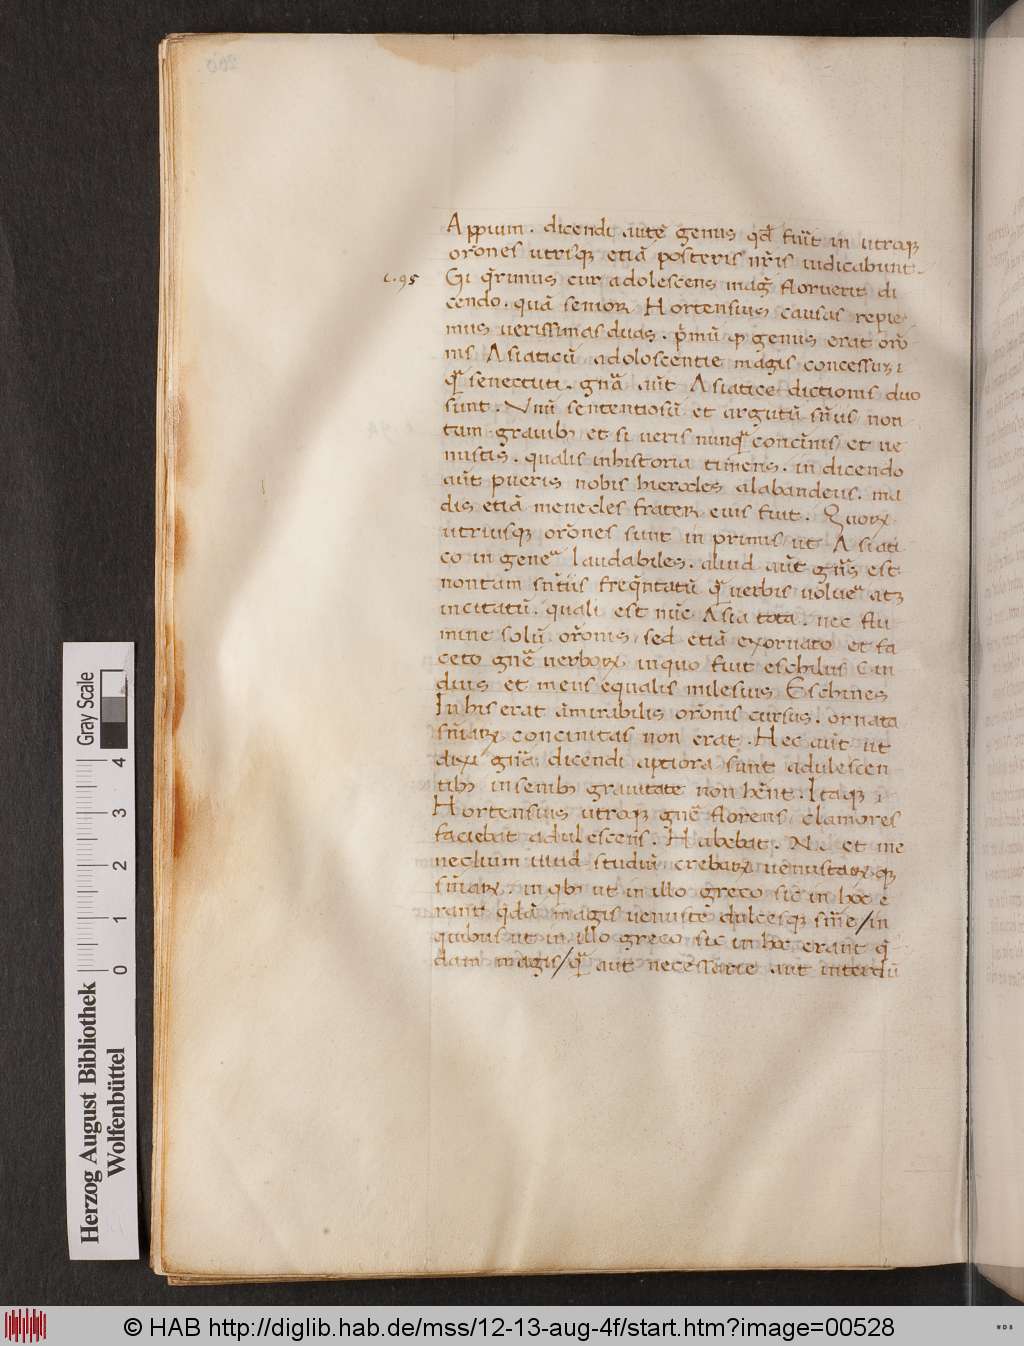 Appium . dicendi autē genus qđ fuit in utraqꝫ
orōnes utrisqꝫ etiā posteris nr̄is iudicabunt .
c. 95
Si q̄rimus cur adolescens mag̃ floruerit di
cendo . quā senior Hortensius causas repie
mus uerissimas duas . p̄mū qꝫ genus erat orō
nis Asiaticū adoloscentie magis concessuꝫ ı
qᷓ senectuti . gn̄a aūt Asiatice dictionis duo
sunt . Vnū sententiosū et argutū sn̄iis non
tam grauibꝫ et si ueris nunqᷓ concinnis et ue
nustis . qualis inhistoria timens . in dicendo
aūt pueris nobis hierocles alabandeus . ma
dis etiā menecles frater eius fuit . Quorꝝ
utriusqꝫ orōnes sunt in primis ut Asiati
co in genere laudabiles . aliud aūt gn̄s est
nontam sn̄tiis freq̄ntatū qᷓ uerbis uolue atꝫ
incitatū . quali est nūc Asia tota . nec flu
mine solū orōnis . sed etiā exornato et fa
ceto gn̄e uerborꝝ inquo fuit eschilus Cin
dius et meus equalis milesius Eschines
In his erat āmirabilis orōnis cursus . ornata
sn̄iarꝝ concinitas non erat . Hec aūt ut
dixi gn̄a dicendi aptiora sunt adulescen
tibꝫ insenibꝫ grauitate non hēnt . Itaqꝫ ı
Hortensius utroqꝫ gn̄e florens clamores
faciebat adulescens . Habebat . N . et me
necluim illud studiū crebarꝝ uenustarꝝqꝫ
sn̄iarꝝ . in qbꝫ ut in illo greco sic in hoc e
rant q̄dā magis uenuste dulcesqꝫ sn̄ie / in
quibus ut in illo greco sic in hoc erant q̄
dam magis / qᷓ aut necessarie aut interdū
Herzog August Bibliothek
Wolfenbüttel
0 1 2 3 4
Gray Scale
© HAB http://diglib.hab.de/mss/12-13-aug-4f/start.htm?image=00528